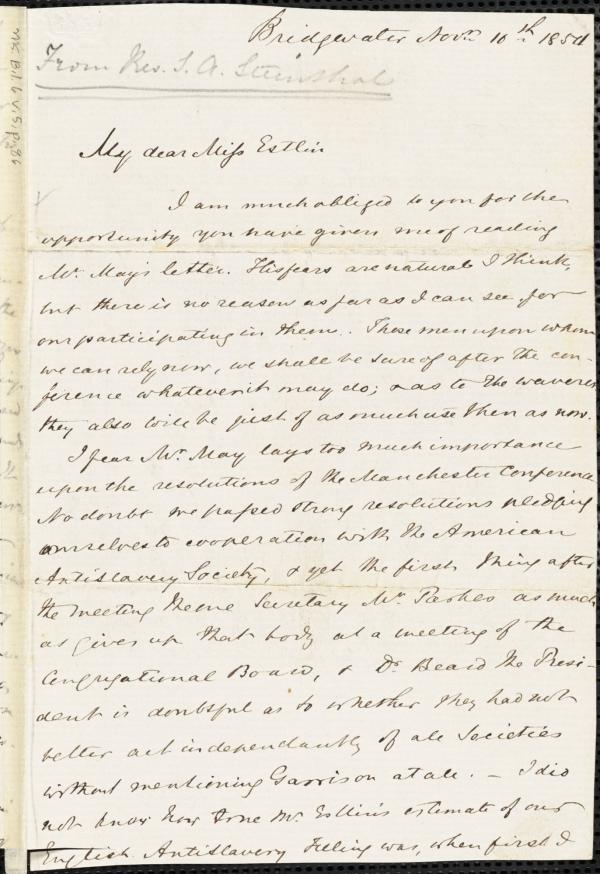 Bridgewater Nov.r 10th 1854
From Rev. S. A. Steinthal
My dear Miss Estlin
I am much obliged to you for the
opportunity you have given me of reading
Mr. May's letter. His fears are natural I think,
but there is no reason as far as I can see for
our participating in them. Those men upon whom
we can rely now, we shall be sure of after the con-
ference whatever it may do; & as to the waverers
they also will be just of as much use then as now.
I fear Mr. May lays too much importance
upon the resolutions of the Manchester Conference
No doubt we passed strong resolutions pledging
ourselves to cooperation with the American
Antislavery Society, & yet the first thing after
the meeting the one Secretary Mr. Parkes as much
as gives up that body at a meeting of the
Congregational Board, & Dr. Beard the Presi-
dent is doubtful as to whether they had not
better act independantly of all Societies
without mentioning Garrison at all. — I did
not know how true Mr. Estlin's estimate of our
English Antislavery feeling was, when first I